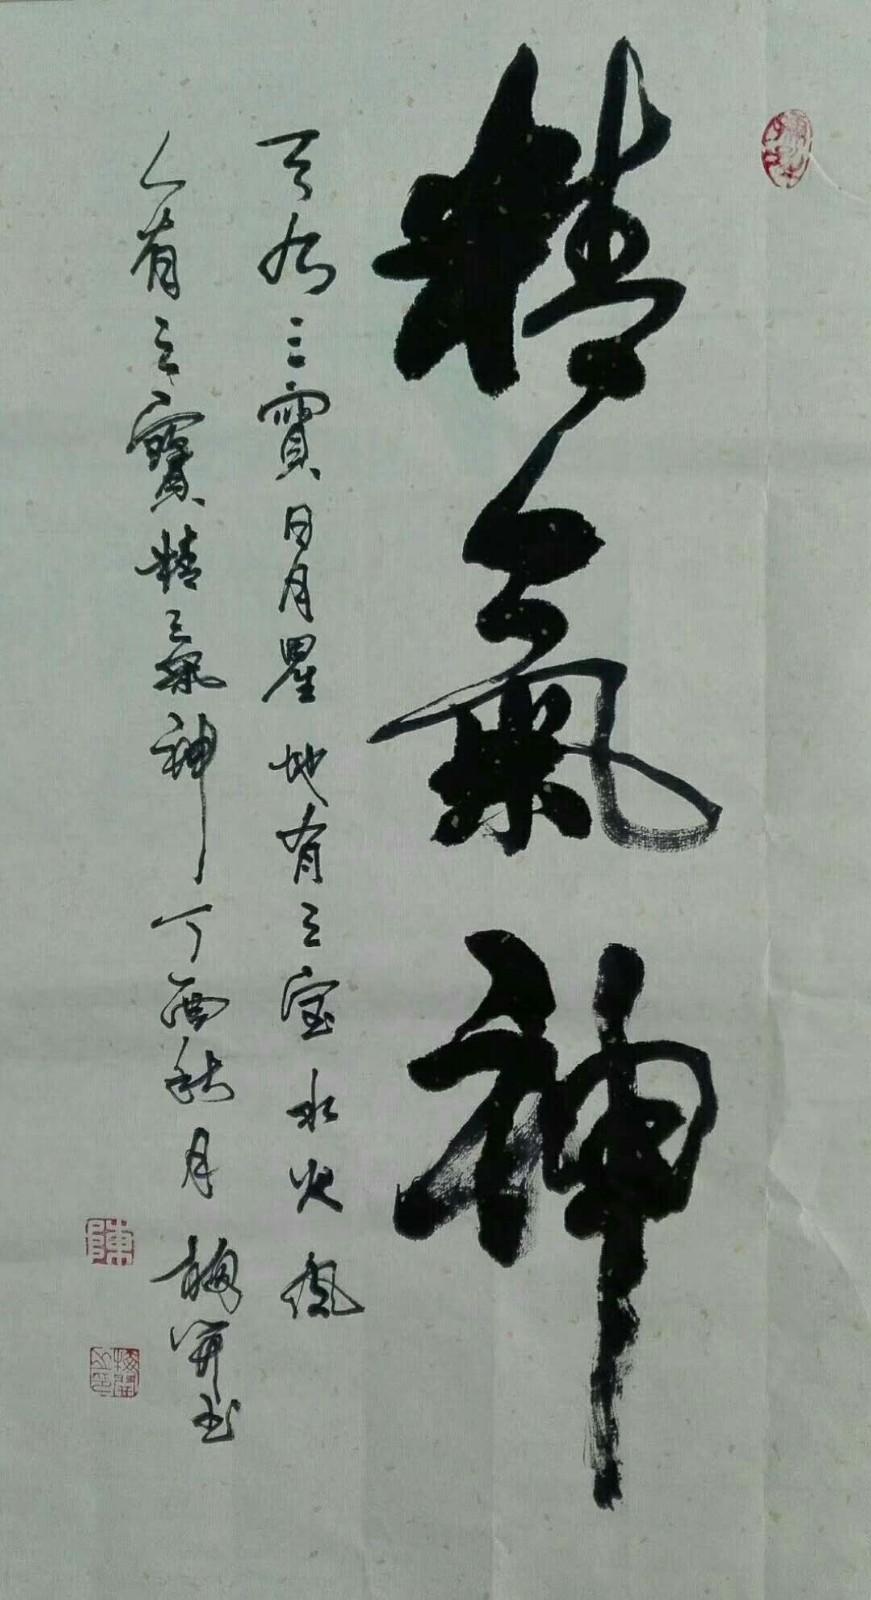 精氣神
天有三寶日月星地有三宝水火風
人有三寶精氣神丁酉秋月梅開书
陳